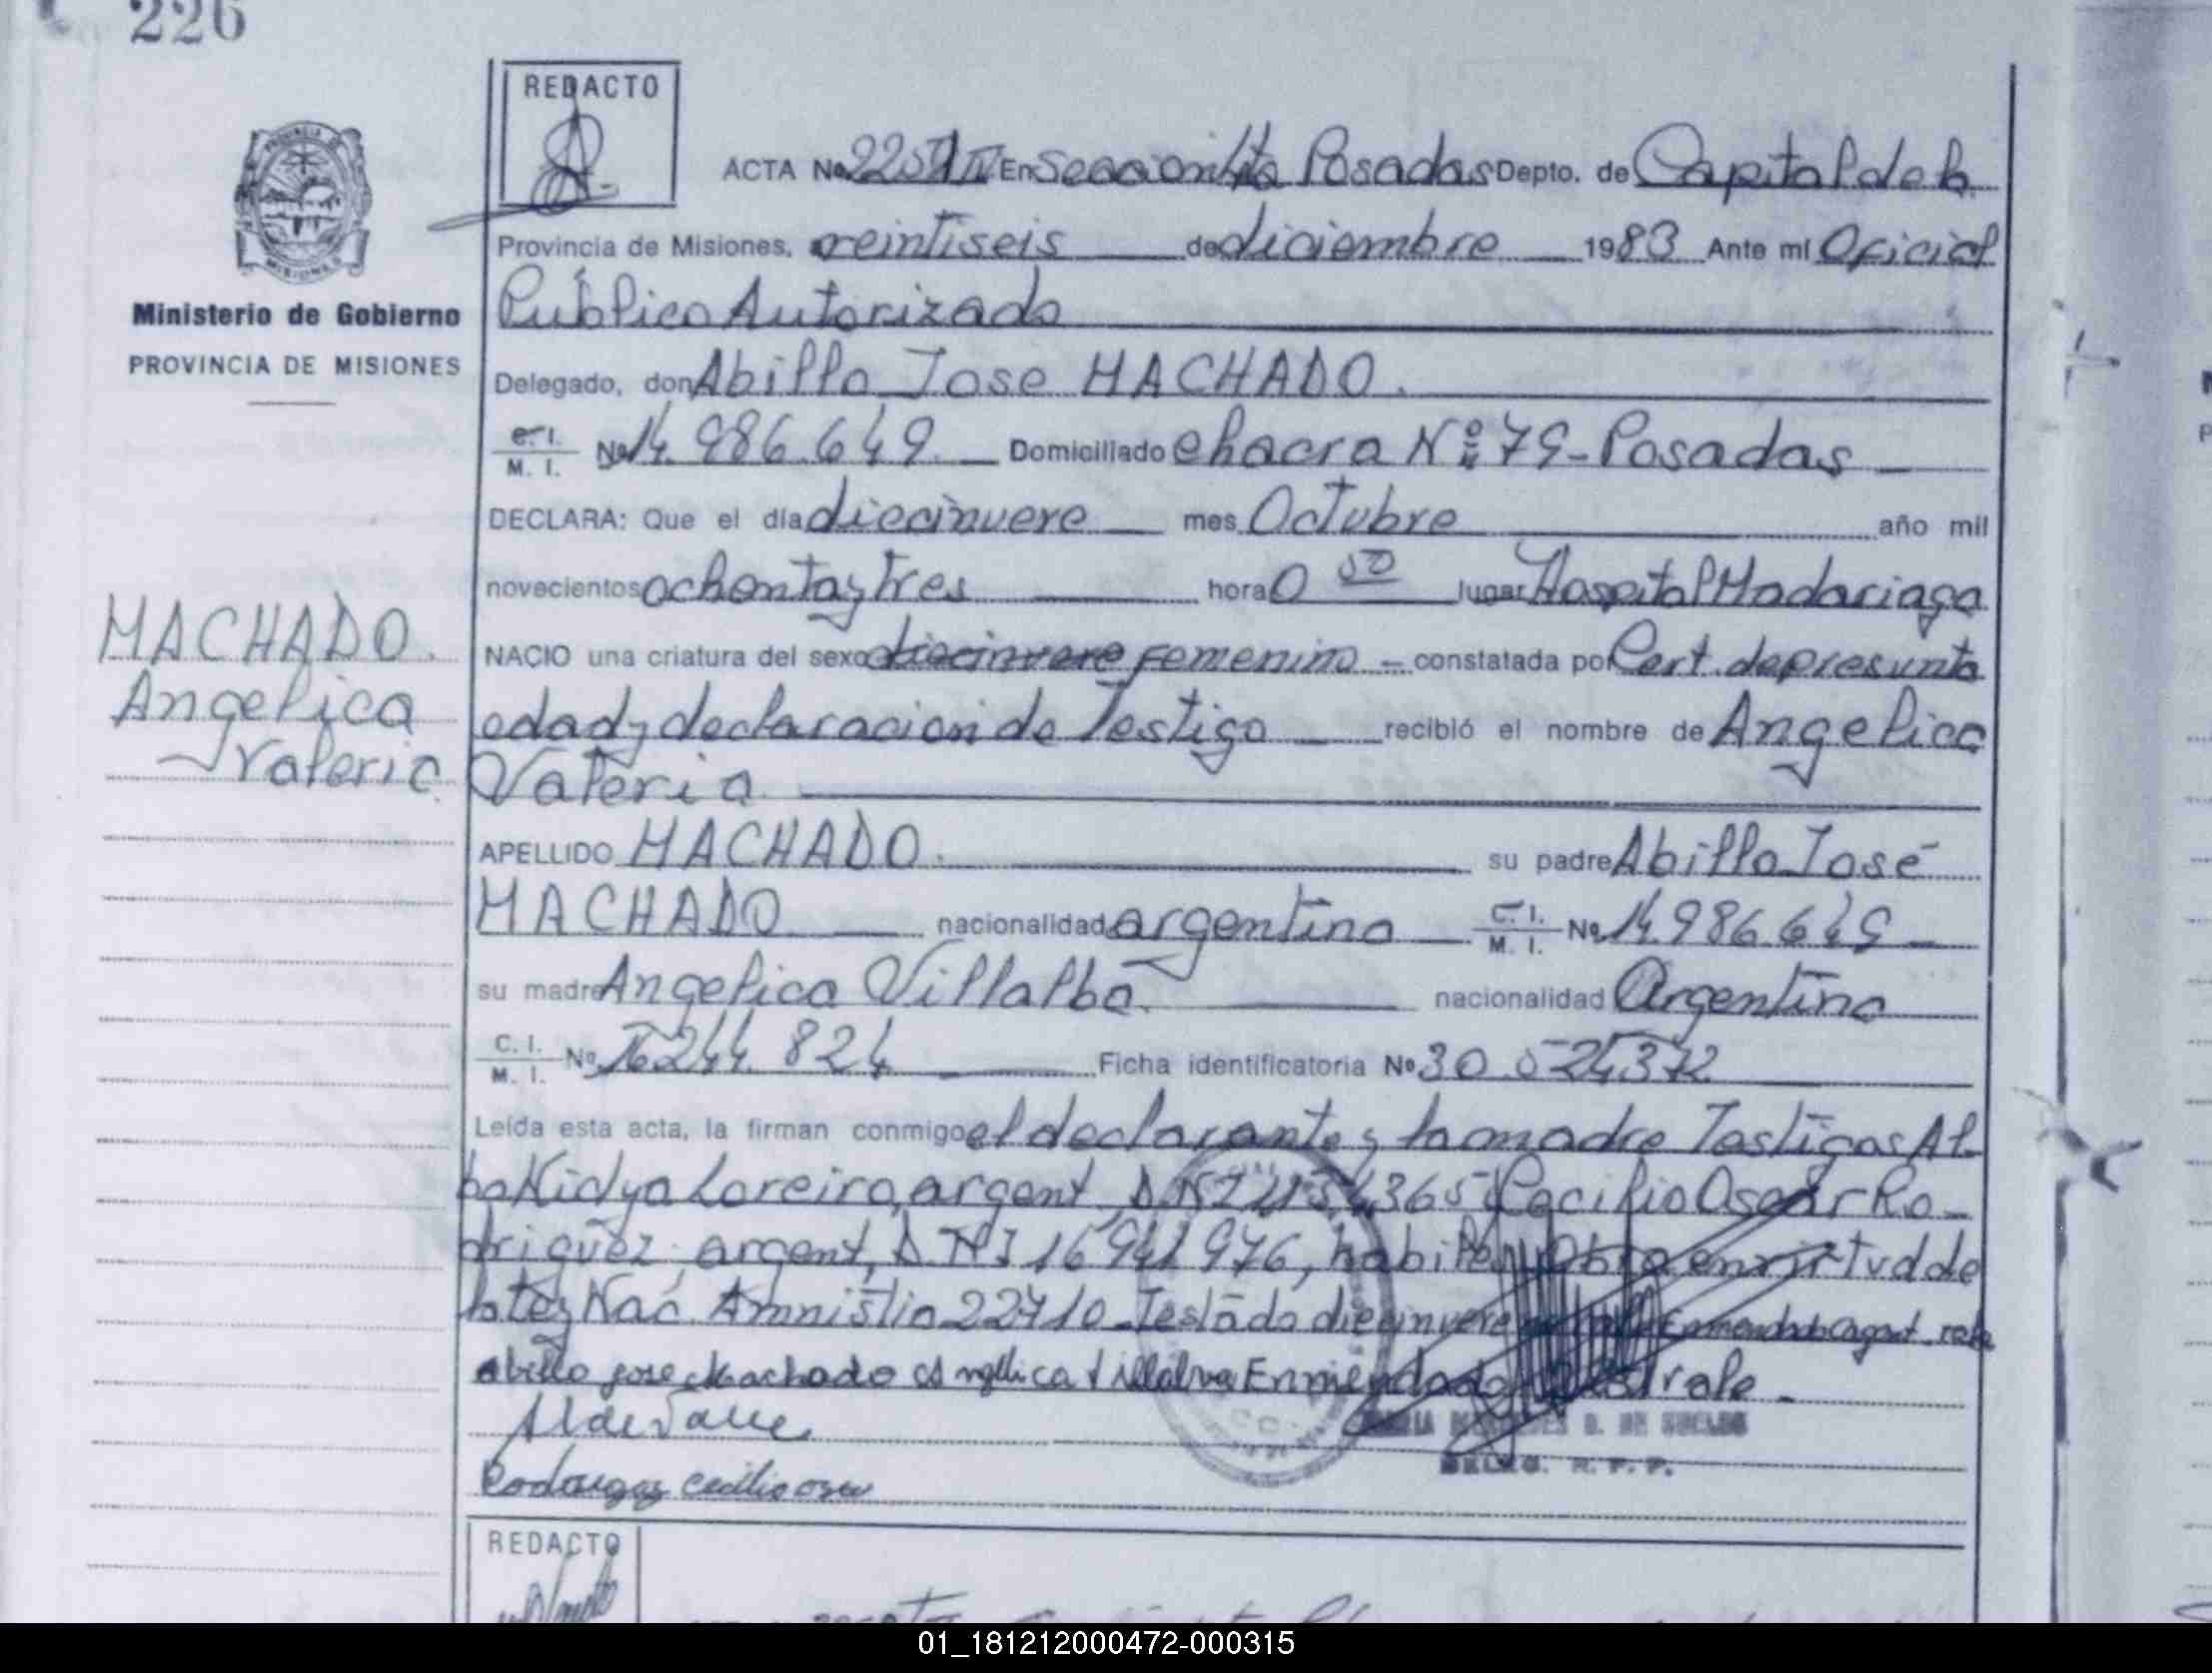 226
REDACTO
ACTA No En Seccion 4ta Posadas Depto. de Capital de la
Provincia de Misiones, a veintiseis de diciembre 1983 Ante mí Oficial
Público Autorizado
Ministerio de Gobierno
PROVINCIA DE MISIONES
Delegado, don Abillo Jose MACHADO.
C. I. M. I. No 14.986.649. Domiciliado chacra Nº 79 - Posadas
DECLARA: Que el día diecinueve mes Octubre año mil
novecientos ochenta y tres hora 0 50 lugar Hospital Madariaga
NACIO una criatura del sexo diecinueve femenino constatada por Cert. de presunta
edad y declaracion de Testigo recibió el nombre de Angelica
Valeria
MACHADO.
Angelica
Valeria
APELLIDO MACHADO. su padre Abillo José
MACHADO nacionalidad argentino C. I. M. I. No 14.986.649
su madre Angelica Villalba. nacionalidad Argentina
C. I. M. I. No 16.244.824 Ficha identificatoria No 30.524.372
Leída esta acta, la firman conmigo el declarante y la madre Testigos Al-
ba Nidya Loreiro, argent, D.N.I Cecilio Oscar Ro-
driguez, argent, D.N.I 16.941.976, habiles, Obra en virtud de
la Ley Nac. Amnistia 22410 - Testado diecinueve Enmendado argent. vale
abillo jose Machado Angelica Villalva Enmendado vale -
Rodriguez Cecilio
DELEG. R. P. P.
REDACTO
01_181212000472-000315